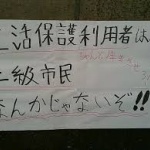 活保護利用者は
二級市民
なんかじゃないぞ!!